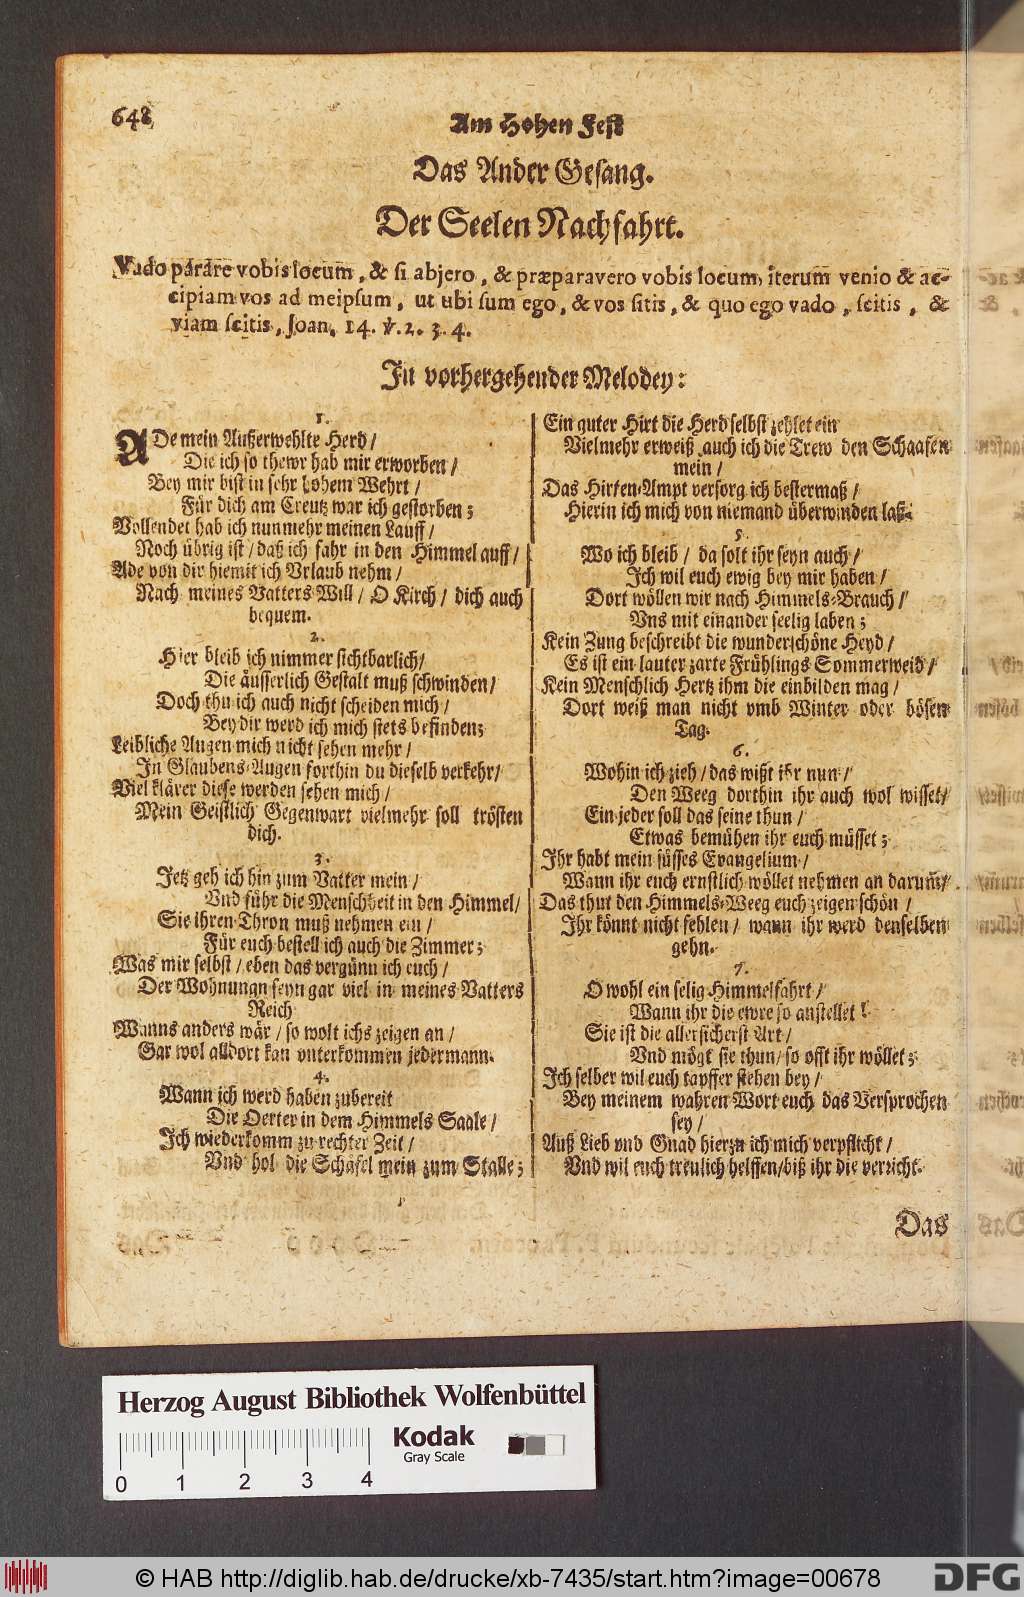 648
Am Hohen Fest
Das Ander Gesang.
Der Seelen Nachfahrt.
Vado parare vobis locum, & si abjero, & præparavero vobis locum, iterum venio & ac-
cipiam vos ad meipsum, ut ubi sum ego, & vos sitis, & quo ego vado, scitis, &
viam scitis, Joan. 14. v. 2. 3. 4.
In vorhergehender Melodey:
1.
ADe mein Außerwehlte Herd /
Die ich so thewr hab mir erworben /
Bey mir bist in sehr hohem Wehrt /
Für dich am Creutz war ich gestorben;
Vollendet hab ich nunmehr meinen Lauff /
Noch übrig ist / daß ich fahr in den Himmel auff /
Ade von dir hiemit ich Vrlaub nehm /
Nach meines Vatters Will / O Kirch / dich auch
bequem.
2.
Hier bleib ich nimmer sichtbarlich /
Die äusserlich Gestalt muß schwinden /
Doch thu ich auch nicht scheiden mich /
Bey dir werd ich mich stets befinden;
Leibliche Augen mich nicht sehen mehr /
In Glaubens-Augen forthin du dieselb verkehr /
Viel klärer diese werden sehen mich /
Mein Geistlich Gegenwart vielmehr soll trösten
dich.
3.
Jetz geh ich hin zum Vatter mein /
Vnd führ die Menschheit in den Himmel /
Sie ihren Thron muß nehmen ein /
Für euch bestell ich auch die Zimmer;
Was mir selbst / eben das vergünn ich euch /
Der Wohnungn seyn gar viel in meines Vatters
Reich
Wanns anders wär / so wolt ichs zeigen an /
Gar wol alldort kan vnterkommen jedermann.
4.
Wann ich werd haben zubereit
Die Oerter in dem Himmels Saale /
Ich wiederkomm zu rechter Zeit /
Vnd hol die Schäfel mein zum Stalle;
Ein guter Hirt die Herd selbst zehlet ein
Vielmehr erweiß auch ich die Trew den Schaafen
mein /
Das Hirten-Ampt versorg ich bestermaß /
Hierin ich mich von niemand überwinden laß.
5.
Wo ich bleib / da solt ihr seyn auch /
Ich wil euch ewig bey mir haben /
Dort wöllen wir nach Himmels-Brauch /
Vns mit einander seelig laben;
Kein Zung beschreibt die wunderschöne Heyd /
Es ist ein lauter zarte Frühlings Sommerweid /
Kein Menschlich Hertz ihm die einbilden mag /
Dort weiß man nicht vmb Winter oder bösen
Tag.
6.
Wohin ich zieh / das wißt ihr nun /
Den Weeg dorthin ihr auch wol wisset /
Ein jeder soll das seine thun /
Etwas bemühen ihr euch müsset;
Ihr habt mein süsses Evangelium /
Wann ihr euch ernstlich wöllet nehmen an darum̃ /
Das thut den Himmels-Weeg euch zeigen schön /
Ihr könnt nicht fehlen / wann ihr werd denselben
gehn.
7.
O wohl ein selig Himmelfahrt /
Wann ihr die ewre so anstellet!
Sie ist die allersicherst Art /
Vnd mögt sie thun / so offt ihr wöllet;
Ich selber wil euch tapffer stehen bey /
Bey meinem wahren Wort euch das Versprochen
sey /
Auß Lieb vnd Gnad hierzu ich mich verpflicht /
Vnd wil euch treulich helffen / biß ihr die verricht.
Das
Herzog August Bibliothek Wolfenbüttel
Kodak
Gray Scale
0 1 2 3 4
© HAB http://diglib.hab.de/drucke/xb-7435/start.htm?image=00678
DFG